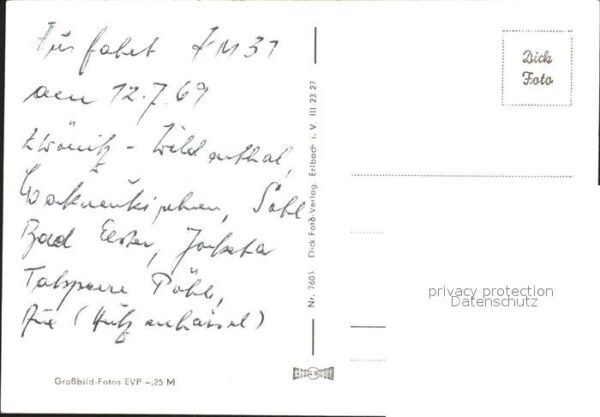 Ausfahrt FM 31
am 12.7.69
Zwönitz - Wildenthal,
Markneukirchen, Sohl
Bad Elster, Jocketa
Talsperre Pöhl,
Aue (Hutzenhäusel)
Großbild-Fotos EVP -,25 M
Nr. 7603 Dick Foto-Verlag, Erlbach i. V. III 23 27
Dick
Foto
privacy protection
Datenschutz